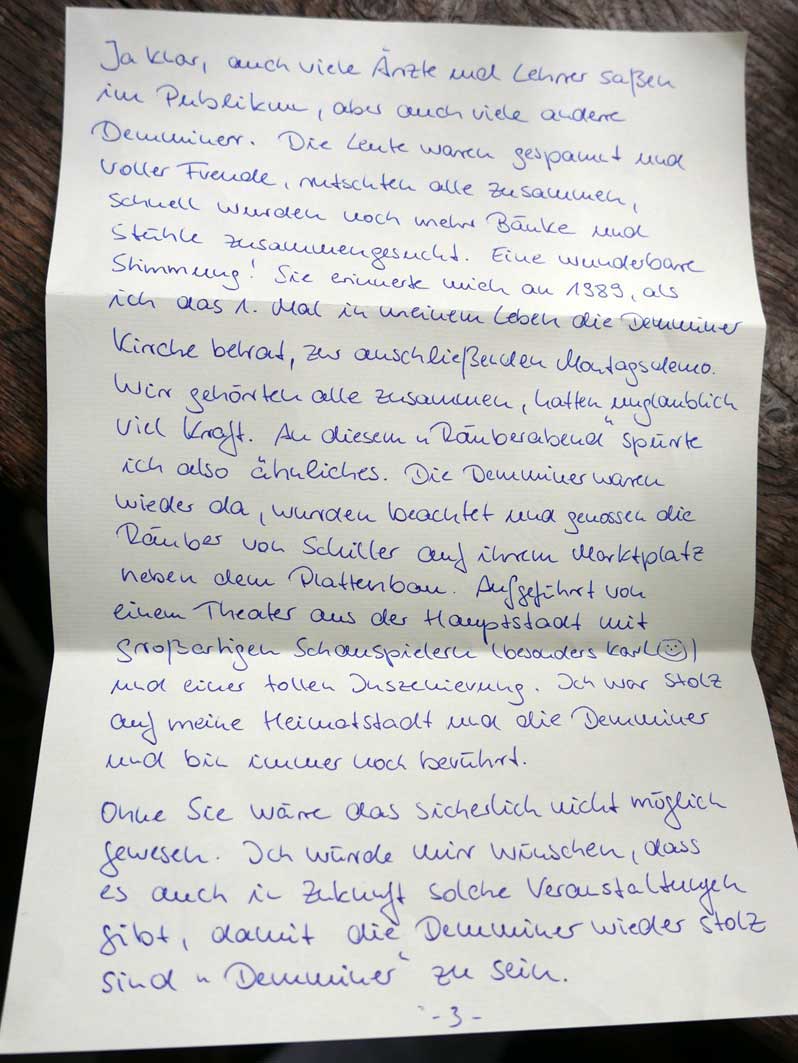 Ja klar, auch viele Ärzte und Lehrer saßen
im Publikum, aber auch viele andere
Demminer. Die Leute waren gespannt und
voller Freude, rutschten alle zusammen,
schnell wurden noch mehr Bänke und
Stühle zusammengesucht. Eine wunderbare
Stimmung! Sie erinnerte mich an 1989, als
ich das 1. Mal in meinem Leben die Demminer
Kirche betrat, zur anschließenden Montagsdemo.
Wir gehörten alle zusammen, hatten unglaublich
viel Kraft. An diesem „Räuberabend“ spürte
ich also ähnliches. Die Demminer waren
wieder da, wurden beachtet und genossen die
Räuber von Schiller auf ihrem Marktplatz
neben dem Plattenbau. Aufgeführt von
einem Theater aus der Hauptstadt mit
großartigen Schauspielern (besonders Karl ☺)
und einer tollen Inszenierung. Ich war stolz
auf meine Heimatstadt und die Demminer
und bin immer noch berührt.
Ohne Sie wäre das sicherlich nicht möglich
gewesen. Ich würde mir wünschen, dass
es auch in Zukunft solche Veranstaltungen
gibt, damit die Demminer wieder stolz
sind „Demminer“ zu sein.
-3-